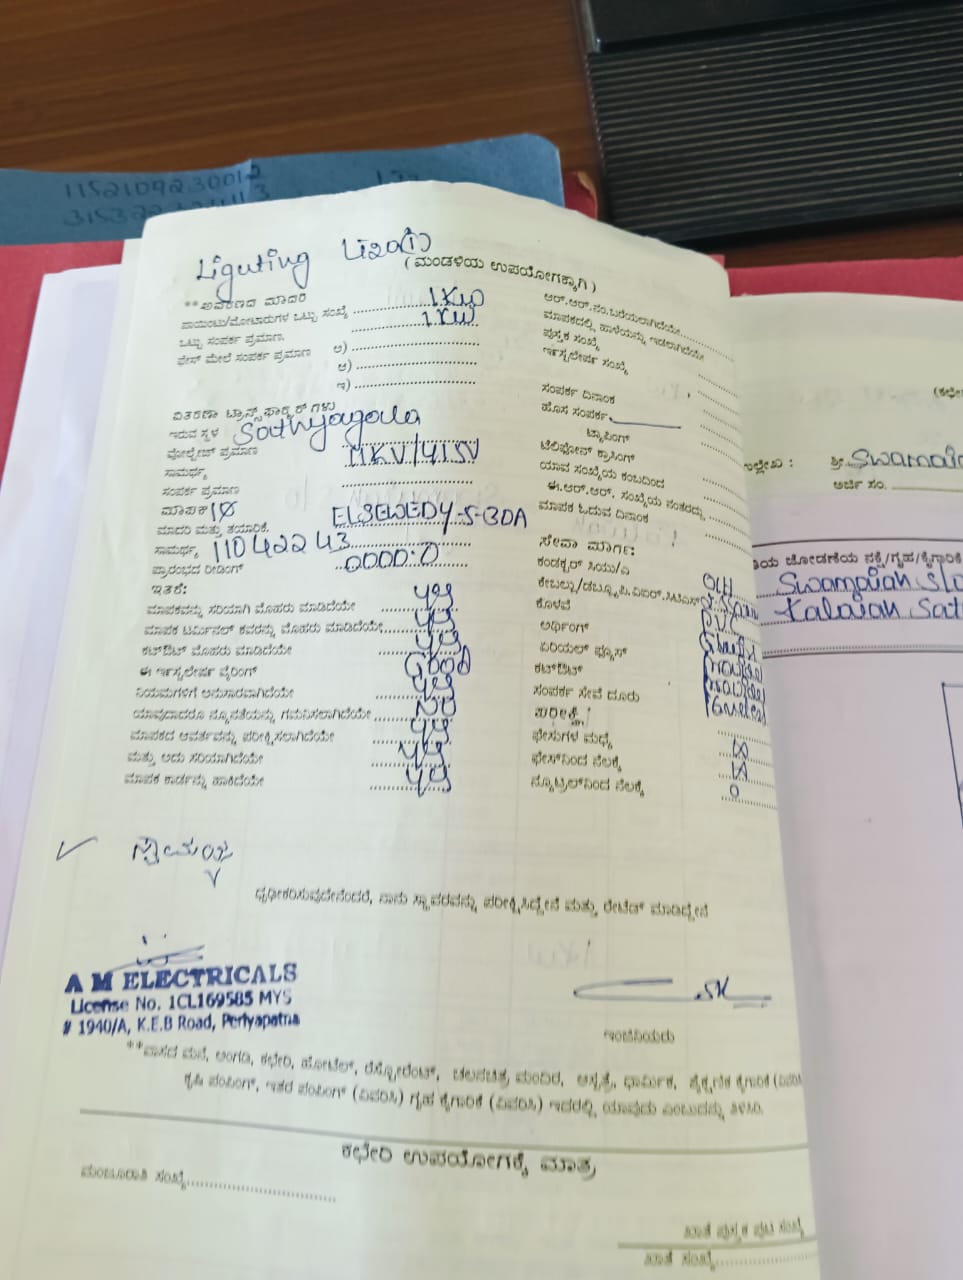 1152109230012
Lighting
(ಮಂಡಳಿಯ ಉಪಯೋಗಕ್ಕಾಗಿ)
ಪಾಯಿಂಟು/ಮೋಟಾರುಗಳ ಒಟ್ಟು ಸಂಖ್ಯೆ 1KW
ಒಟ್ಟು ಸಂಪರ್ಕ ಪ್ರಮಾಣ. 1KW
ಫೇಸ್ ಮೇಲೆ ಸಂಪರ್ಕ ಪ್ರಮಾಣ ಅ)
ಆ)
ಇ)
ವಿತರಣಾ ಟ್ರಾನ್ಸ್‌ಫಾರ್ಮರ್‌ಗಳು
ಇರುವ ಸ್ಥಳ Sathyagala
ವೋಲ್ಟೇಜ್ ಪ್ರಮಾಣ 11KV/415V
ಸಾಮರ್ಥ್ಯ
ಸಂಪರ್ಕ ಪ್ರಮಾಣ
ಮಾಪಕ 1Ø
ಮಾದರಿ ಮತ್ತು ತಯಾರಿಕೆ. ELSEWEDY-5-30A
ಸಾಮರ್ಥ್ಯ 11042243
ಪ್ರಾರಂಭದ ರೀಡಿಂಗ್ 0000.0
ಇತರೆ:
ಮಾಪಕವನ್ನು ಸರಿಯಾಗಿ ಮೊಹರು ಮಾಡಿದೆಯೇ
ಮಾಪಕ ಟರ್ಮಿನಲ್ ಕವರನ್ನು ಮೊಹರು ಮಾಡಿದೆಯೇ
ಕಟ್‌ಔಟ್ ಮೊಹರು ಮಾಡಿದೆಯೇ
ಈ ಇನ್ಸ್ಟಲೇಷನ್ ವೈರಿಂಗ್ Good
ನಿಯಮಗಳಿಗೆ ಅನುಸಾರವಾಗಿದೆಯೇ
ಯಾವುದಾದರೂ ನ್ಯೂನತೆಯನ್ನು ಗಮನಿಸಲಾಗಿದೆಯೇ NO
ಮಾಪಕದ ಆವರ್ತವನ್ನು ಪರೀಕ್ಷಿಸಲಾಗಿದೆಯೇ
ಮತ್ತು ಅದು ಸರಿಯಾಗಿದೆಯೇ
ಮಾಪಕ ಕಾರ್ಡನ್ನು ಹಾಕಿದೆಯೇ
ಆರ್.ಆರ್.ನಂ.ಬರೆಯಲಾಗಿದೆಯೇ
ಮಾಪಕದಲ್ಲಿ ಹಾಳೆಯನ್ನು ಇಡಲಾಗಿದೆಯೇ
ಪುಸ್ತಕ ಸಂಖ್ಯೆ
ಇನ್ಸ್ಟಲೇಷನ್ ಸಂಖ್ಯೆ
ಸಂಪರ್ಕ ದಿನಾಂಕ
ಹೊಸ ಸಂಪರ್ಕ
ಟ್ಯಾಪಿಂಗ್
ಟೆಲಿಫೋನ್ ಕ್ರಾಸಿಂಗ್
ಯಾವ ಸಂಖ್ಯೆಯ ಕಂಬದಿಂದ
ಈ.ಆರ್.ಆರ್. ಸಂಖ್ಯೆಯ ನಂತರದ್ದು
ಮಾಪಕ ಓದುವ ದಿನಾಂಕ
ಸೇವಾ ಮಾರ್ಗ:
ಕಂಡಕ್ಟರ್ ಸಿಯು/ಎ OH
ಕೊಳವೆ PVC
ಅರ್ಥಿಂಗ್
ಏರಿಯಲ್ ಫ್ಯೂಸ್
ಕಟ್‌ಔಟ್
ಸಂಪರ್ಕ ಸೇವೆ ದೂರು
ಪರೀಕ್ಷೆ
ಫೇಸುಗಳ ಮಧ್ಯೆ
ಫೇಸ್‌ನಿಂದ ನೆಲಕ್ಕೆ
ನ್ಯೂಟ್ರಲ್‌ನಿಂದ ನೆಲಕ್ಕೆ 0
ದೃಢೀಕರಿಸುವುದೇನೆಂದರೆ, ನಾನು ಸ್ಥಾವರವನ್ನು ಪರೀಕ್ಷಿಸಿದ್ದೇನೆ ಮತ್ತು ರೇಟೆಡ್ ಮಾಡಿದ್ದೇನೆ
A M ELECTRICALS
License No. 1CL169585 MYS
# 1940/A, K.E.B Road, Periyapatna
ಇಂಜಿನಿಯರು
**ವಾಸದ ಮನೆ, ಅಂಗಡಿ, ಕಛೇರಿ, ಹೋಟೆಲ್, ರೆಸ್ಟೋರೆಂಟ್, ಚಲನಚಿತ್ರ ಮಂದಿರ, ಆಸ್ಪತ್ರೆ, ಧಾರ್ಮಿಕ, ಶೈಕ್ಷಣಿಕ ಕೈಗಾರಿಕೆ
ಕೃಷಿ ಪಂಪಿಂಗ್, ಇತರ ಪಂಪಿಂಗ್ (ವಿವರಿಸಿ) ಗೃಹ ಕೈಗಾರಿಕೆ (ವಿವರಿಸಿ) ಇದರಲ್ಲಿ ಯಾವುದು ಎಂಬುದನ್ನು ತಿಳಿಸಿ.
ಕಛೇರಿ ಉಪಯೋಗಕ್ಕೆ ಮಾತ್ರ
ಮಂಜೂರಾತಿ ಸಂಖ್ಯೆ
ಖಾತೆ ಪುಸ್ತಕ ಪುಟ ಸಂಖ್ಯೆ
ಖಾತೆ ಸಂಖ್ಯೆ
ಉಲ್ಲೇಖ : ಶ್ರೀ
ಅರ್ಜಿ ಸಂ.
Swamaiah S/o
Kalaiah